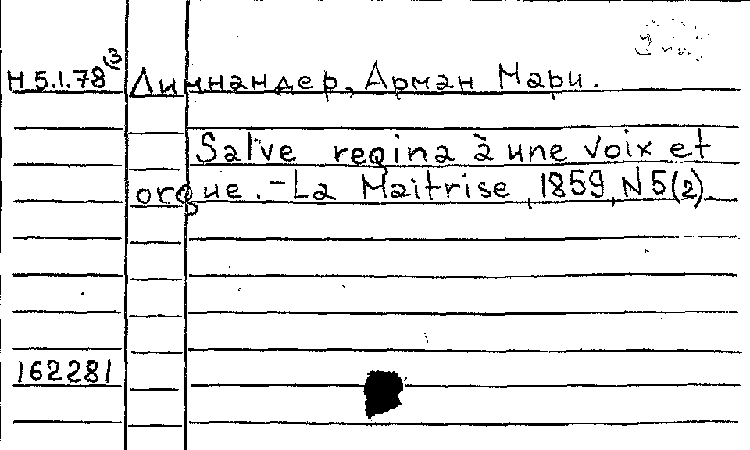 Н 5.1.78(3 Лимнандер, Арман Мари.
Salve regina à une voix et
orgue. - La Maitrise, 1859, N 5(2)
162281